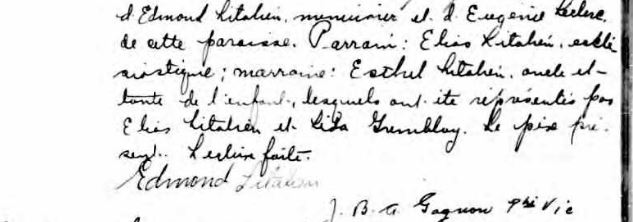 d'Edmond Litalien, menuisier et d'Eugenie Leclerc,
de cette paroisse. Parrain: Elias Litalien, ecclé
siastique; marraine: Esthel Litalien, oncle et
tante de l'enfant, lesquels ont été représentés par
Elias Litalien et Lida Tremblay. Le père pré
sent. Lecture faite.
Edmond Litalien
J. B. A Gagnon Ptre Vic